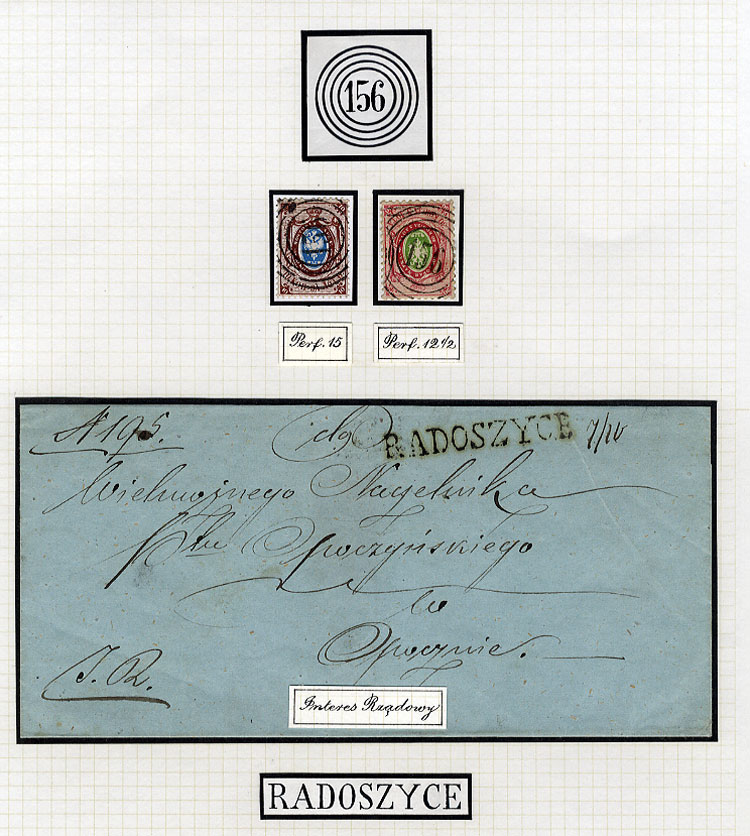 156
Perf. 15
Perf. 12 1/2
N 195. do RADOSZYCE 7/10
Wielmożnego Naczelnika
Ptu Opoczyńskiego
w
Opocznie.
I. R.
Interes Rządowy
RADOSZYCE